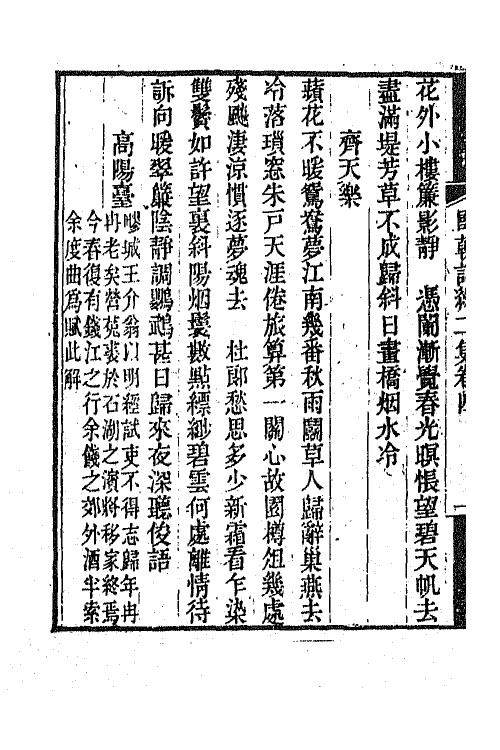 花外小樓簾影靜　憑闌漸覺春光暝悵望碧天帆去
盡滿堤芳草不成歸斜日畫橋烟水冷
齊天樂
蘋花不暖鴛鴦夢江南幾番秋雨鬭草人歸辭巢燕去
冷落瑣窓朱戸天涯倦旅算第一關心故園樽俎幾處
殘颷淒涼慣逐夢魂去　杜郞愁思多少新霜看乍染
雙鬢如許望裏斜陽烟鬟數點縹緲碧雲何處離情待
訴向暖翠簾陰靜調鸚鵡甚日歸來夜深聽俊語
高陽臺
嘐城王介翁以明經試吏不得志歸年冉
冉老矣營菟裘於石湖之濱將移家終焉
今春復有錢江之行余餞之郊外酒半索
余度曲爲賦此解
國朝詞綜二集卷四
一